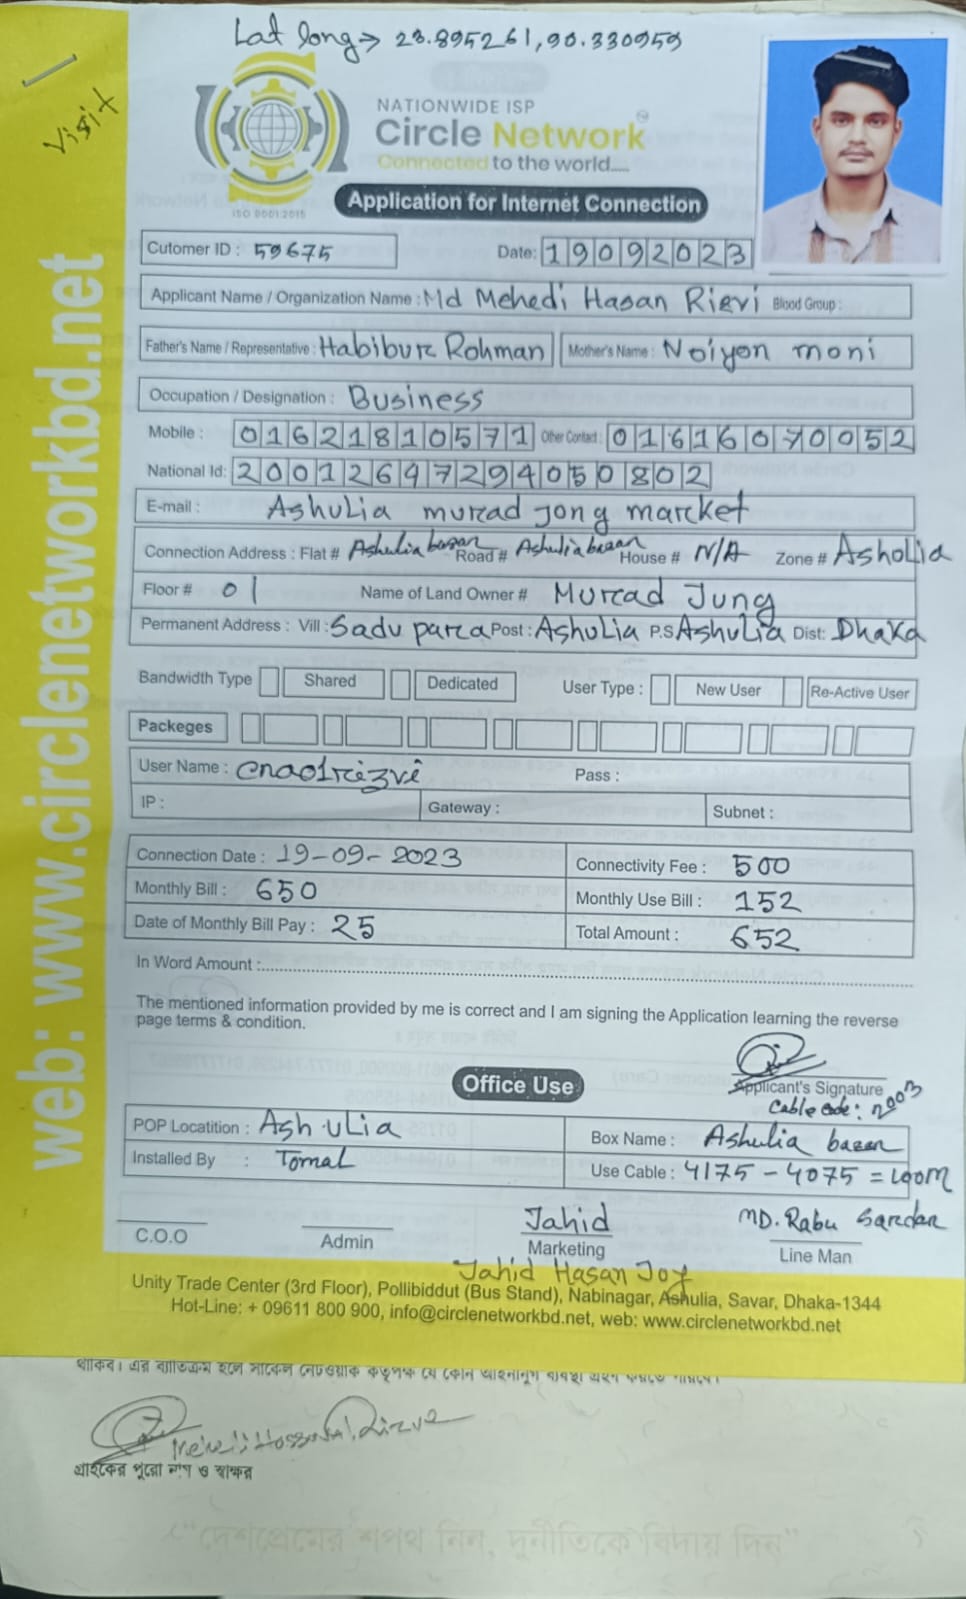 Lat long → 23.895261, 90.330959
Visit
NATIONWIDE ISP
Circle Network
Connected to the world.....
ISO 9001:2015
Application for Internet Connection
Cutomer ID : 59675 Date: 19092023
Applicant Name / Organization Name : Md Mehedi Hasan Rizvi Blood Group :
Father's Name / Representative : Habibur Rohman Mother's Name : Noiyon moni
Occupation / Designation : Business
Mobile : 01621810571 Other Contact : 01616070052
National Id: 20012697294050802
E-mail : Ashulia murad Jong market
Connection Address : Flat # Ashulia bazar Road # Ashulia bazar House # N/A Zone # Asholia
Floor # 01 Name of Land Owner # Murad Jung
Permanent Address : Vill : Sadu para Post : Ashulia P.S Ashulia Dist: Dhaka
Bandwidth Type Shared Dedicated User Type : New User Re-Active User
Packeges
User Name : cnaolrizvi Pass :
IP : Gateway : Subnet :
Connection Date : 19-09-2023 Connectivity Fee : 500
Monthly Bill : 650 Monthly Use Bill : 152
Date of Monthly Bill Pay : 25 Total Amount : 652
In Word Amount :
The mentioned information provided by me is correct and I am signing the Application learning the reverse
page terms & condition.
Applicant's Signature
Cable code: 2003
Office Use
POP Locatition : Ashulia Box Name : Ashulia bazar
Installed By : Tomal Use Cable : 4175 - 4075 = 100m
Jahid MD. Rabu Sardar
C.O.O Admin Marketing Line Man
Jahid Hasan Joy
Unity Trade Center (3rd Floor), Pollibiddut (Bus Stand), Nabinagar, Ashulia, Savar, Dhaka-1344
Hot-Line: + 09611 800 900, info@circlenetworkbd.net, web: www.circlenetworkbd.net
web: www.circlenetworkbd.net
থাকিব। এর ব্যতিক্রম হলে সার্কেল নেটওয়ার্ক কর্তৃপক্ষ যে কোন আইনানুগ ব্যবস্থা গ্রহণ করতে পারবে।
গ্রাহকের পুরো নাম ও স্বাক্ষর
"দেশপ্রেমের শপথ নিন, দুর্নীতিকে বিদায় দিন"